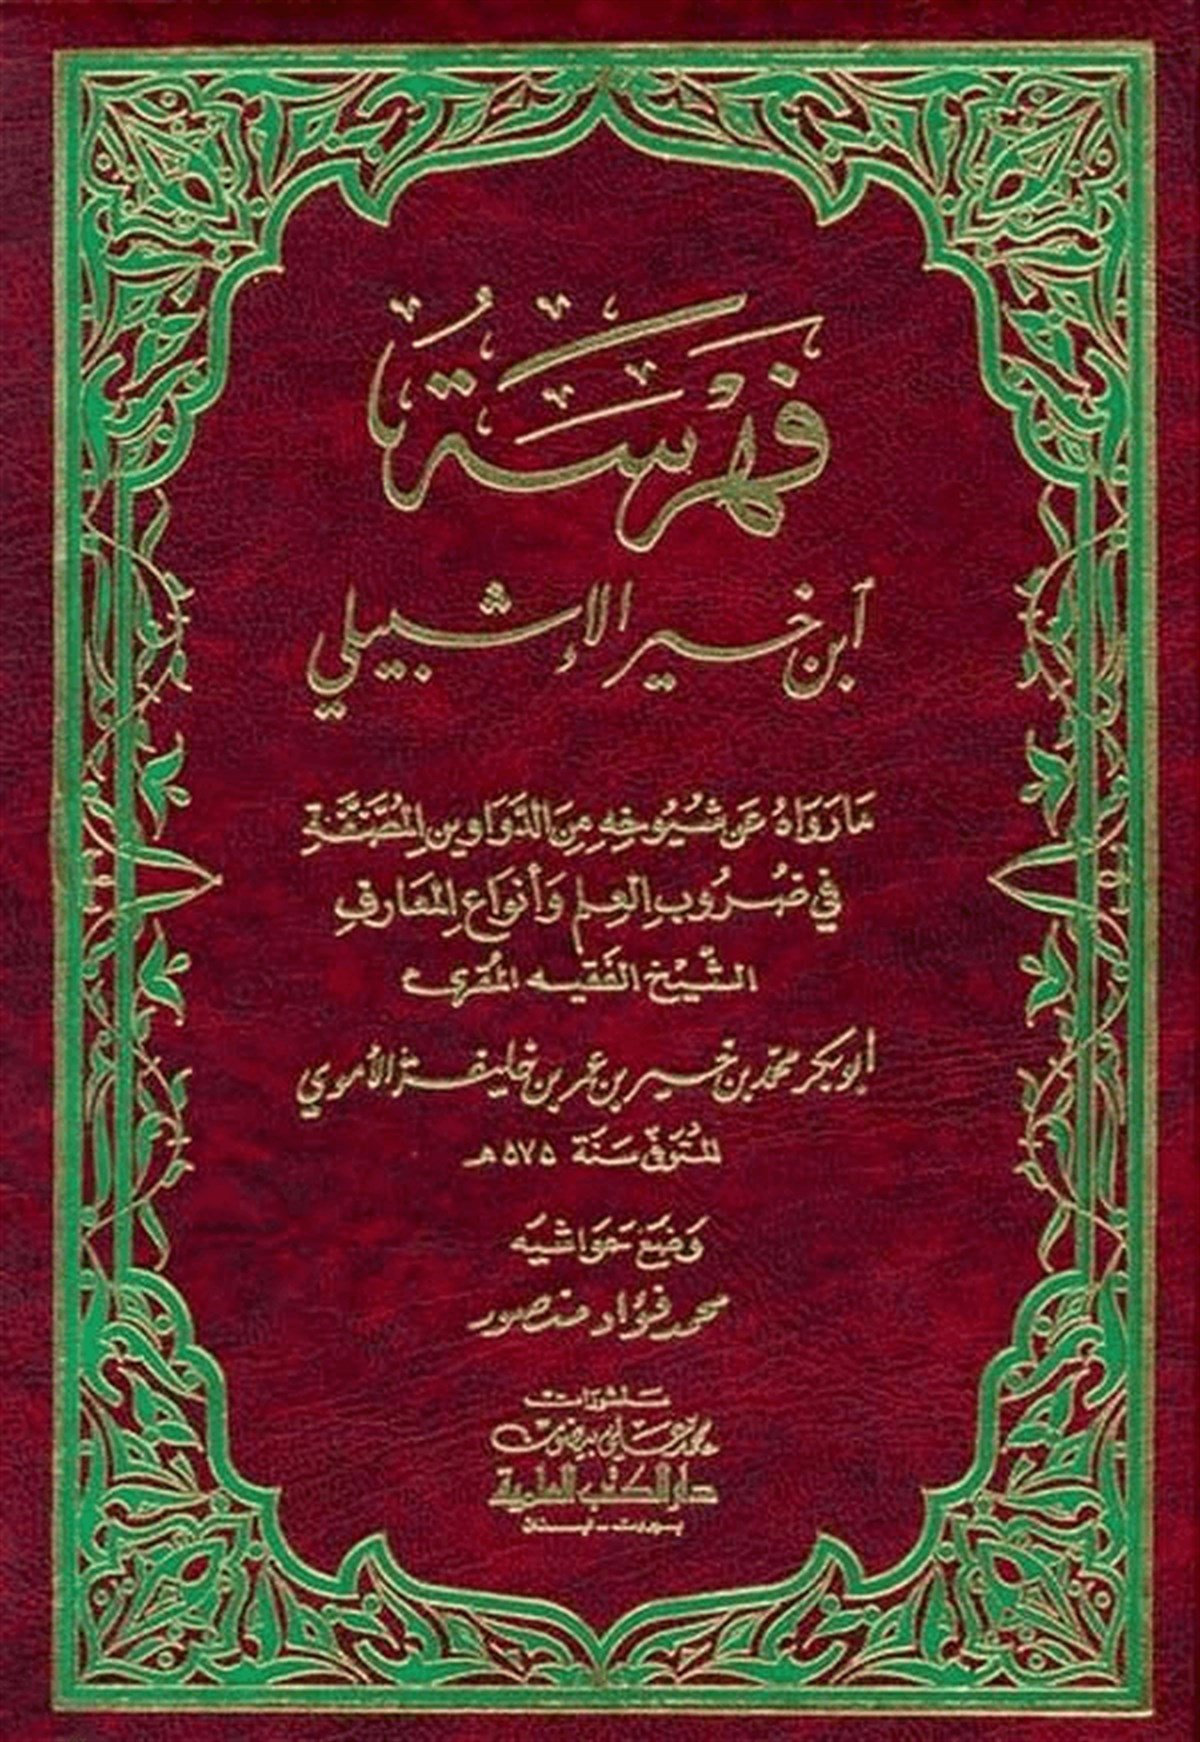 فَهْرَسَةُ
ابن خير الإشبيلي
مَا رَوَاهُ عَنْ شُيُوخِهِ مِنَ الدَّوَاوِينِ المُصَنَّفَةِ
في ضُرُوبِ العِلمِ وَأنوَاعِ المَعَارِفِ
الشَّيْخ الفَقيه المُقرىء
ابو بكر محمّد بن خير بن عمر بن خليفة الأموي
المتوَفىّ سَنَة ٥٧٥ هـ
وَضَعَ حَوَاشيَه
محمد فؤاد منصور
منشورات
محمد علي بيضون
دار الكتب العلمية
بيروت - لبنان